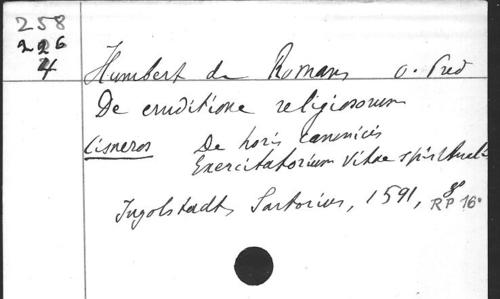 258
226
4
Humbert de Romans O. Pred
De eruditione religiosorum
Cisneros De horis canonicis
Exercitatorium Vitae spiritual.
Ingolstadt, Sartorius, 1591, 8°
RP 16°